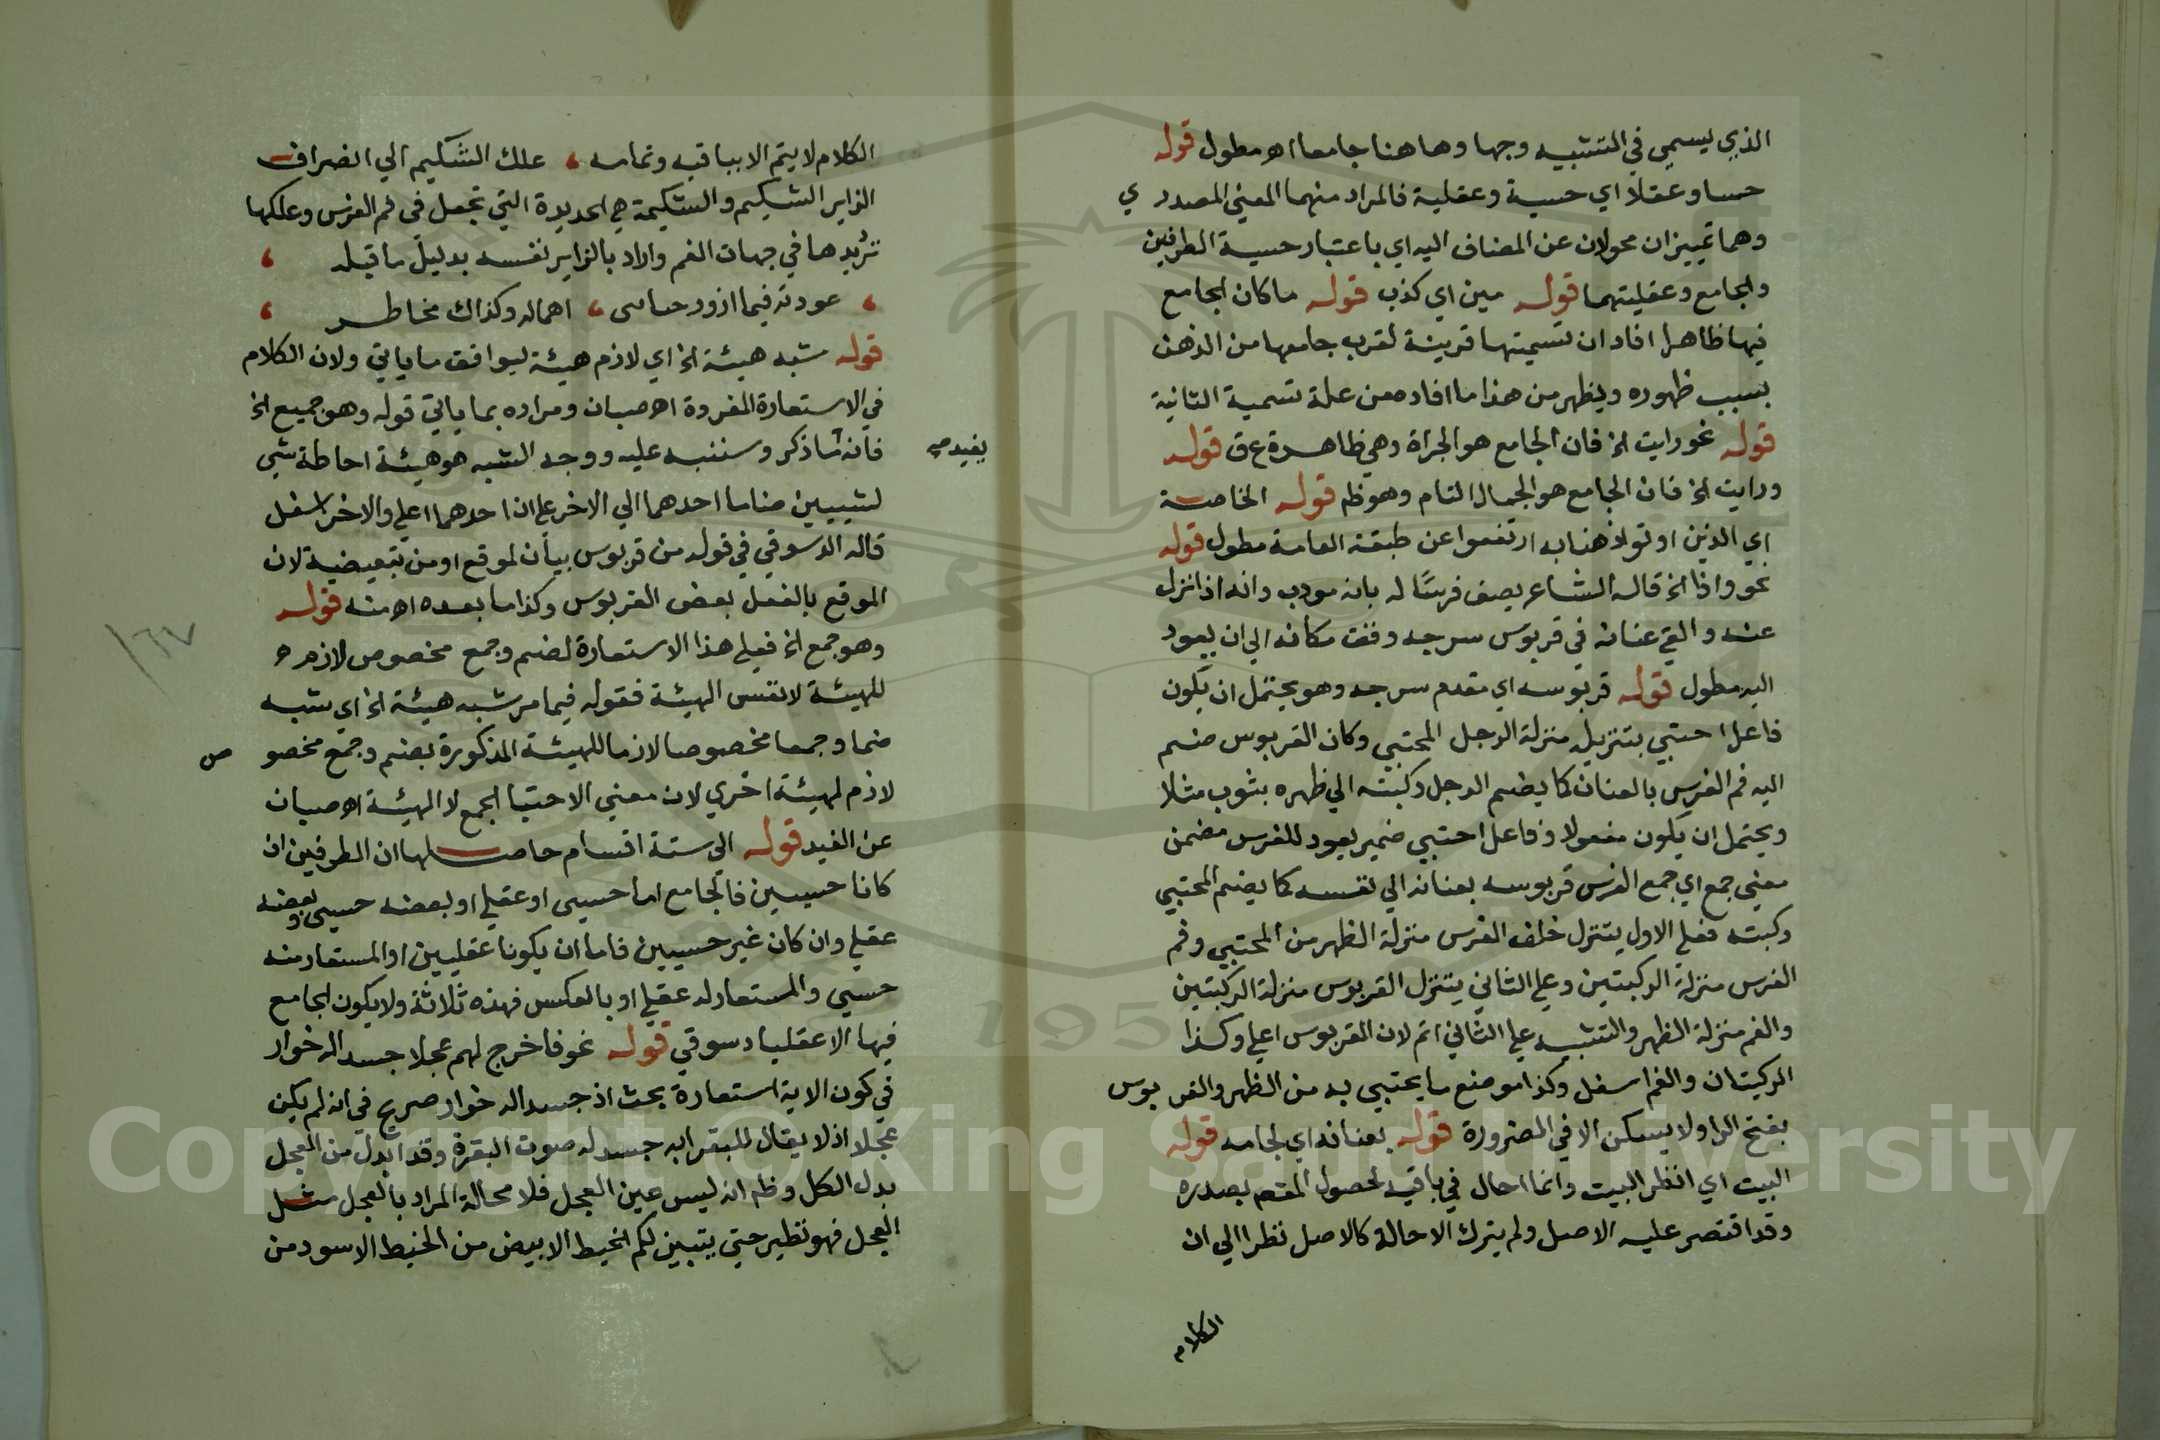 الذي يسمي في التشبيه وجها وهاهنا جامعا اهـ مطول قوله
حسا وعقلا اي حسية وعقلية فالمراد منهما المعني المصدري
وهما تمييزان محولان عن المضاف اليه اي باعتبار حسية الطرفين
والجامع وعقليتهما قوله مين اي كذب قوله ما كان الجامع
فيها ظاهرا افاد ان تسميتها قريبة لقرب جامعها من الذهن
بسبب ظهوره ويظهر من هذا ما افاده من علة تسمية الثانية
قوله نحو رايت الخ فان الجامع هو الجراة وهي ظاهرة ع ق قوله
ورايت الخ فان الجامع هو الجمال التام وهو ظم قوله الخاصة
اي الذين اوتوا ذهنا به ارتفعوا عن طبقة العامة مطول قوله
نحو واذا الخ قاله الشاعر يصف فرسًا له بانه مودب وانه اذا نزل
عنه والقي عنانه في قربوس سرجه وقف مكانه الي ان يعود
اليه مطول قوله قربوسه اي مقدم سرجه وهو يحتمل ان يكون
فاعل احتبي بتنزيله منزلة الرجل المحتبي وكان القربوس ضم
اليه فم الفرس بالعنان كما يضم الرجل ركبته الي ظهره بثوب مثلا
ويحتمل ان يكون مفعولا وفاعل احتبي ضمير يعود للفرس مضمن
معني جمع اي جمع الفرس قربوسه بعنانه الي نفسه كما يضم المحتبي
ركبته فعلي الاول يتنزل خلف الفرس منزلة الظهر من المحتبي وفم
الفرس منزلة الركبتين وعلي الثاني يتنزل القربوس منزلة الركبتين
والفم منزلة الظهر والتشبيه علي الثاني اتم لان القربوس اعلي وكذا
الركبتان والفم اسفل وكذا موضع ما يحتبي به من الظهر والقربوس
بفتح الرا ولا يسكن الا في الضرورة قوله بعنانه اي لجامه قوله
البيت اي انظر البيت وانما احال في باقيه لحصول المقصم بصدره
وقد اقتصر عليه الاصل ولم يترك الاحالة كالاصل نظرا الي ان
الكلام
الكلام لا يتم الا بباقيه وتمامه علك الشكيم الي انصراف
الزاير الشكيم والشكيمة هي الحديدة التي تجعل في فم الفرس وعلكها
تزبدها في جهات الفم واراد بالزاير نفسه بدليل ما قبله
عودته فيما ازور حبايبي اهماله وكذاك مخاطر
قوله شبه هيئة الخ اي لازم هيئة ليوافق ما ياتي ولان الكلام
في الاستعارة المفردة اهـ صبان ومراده بما ياتي قوله وهو جميع الخ
فانه ما ذكر وسننبه عليه ووجه الشبه هو هيئة احاطة شي
يفيد
لشيئين ضاما احدهما الي الاخر علي ان احدهما اعلي والاخر اسفل
قاله الدسوقي في قوله من قربوس بيان لموقع او من تبعيضية لان
الموقع بالفعل بعض القربوس وكذا ما بعده اهـ منه قوله
وهو جمع الخ فعلي هذا الاستعارة لضم وجمع مخصوص لازم
للهيئة لا نفس الهيئة فقوله فيما مر شبه هيئة الخ اي شبه
ضما وجمعا مخصوصا لازما للهيئة المذكورة بضم وجمع مخصوص
لازم لهيئة اخري لان معني الاحتبا الجمع لا الهيئة اهـ صبان
عن الفيد قوله الي ستة اقسام حاصلها ان الطرفين ان
كانا حسيين فالجامع اما حسي او عقلي او بعضه حسي وبعضه
عقلي وان كان غير حسيين فاما ان يكونا عقليين او المستعار منه
حسي والمستعار له عقلي او بالعكس فهذه ثلاثة ولا يكون الجامع
فيها الا عقليا دسوقي قوله نحو فاخرج لهم عجلا جسدا له خوار
في كون الاية استعارة بحث اذ جسدا له خوار صريح في انه لم يكن
عجلا اذ لا يقال للبقر انه جسد له صوت البقرة وقد ابدل من العجل
بدل الكل وظم انه ليس عين العجل فلا محالة المراد بالعجل مثل
العجل فهو نظير حتي يتبين لكم الخيط الابيض من الخيط الاسود من
١٦٧
Copyright © King Saud University
1957